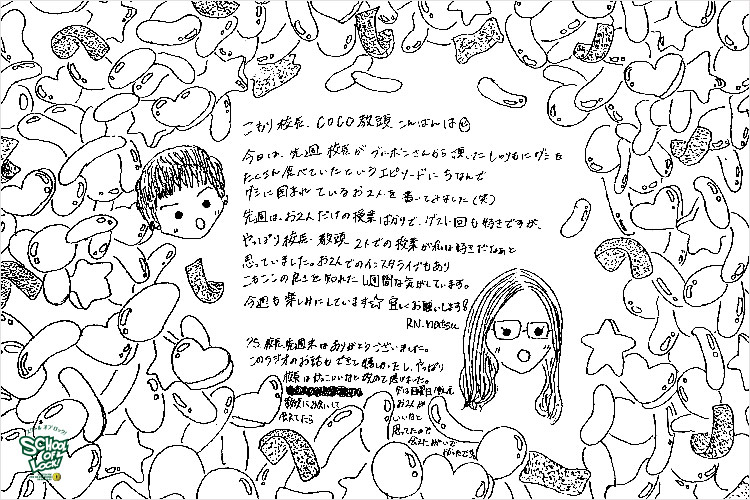 こもり校長、COCO教頭 こんばんは
今日は、先週 校長がブルボンさんから頂いたしゅわもにグミを
たくさん食べていたというエピソードにちなんで
グミに囲まれているお2人を書いてみました(笑)
先週は、お2人だけの授業ばかりで、ゲスト回も好きですが、
やっぱり校長、教頭 2人での授業が私は好きだなぁと
思っていました。お2人でのインスタライブもあり
コモココの良さを知れた1週間な気がしています。
今週も楽しみにしています☆ 宜しくお願いします!
RN.
P.S. 先週末はありがとうございました。
このラジオのお話もできて嬉しかったし、やっぱり
校長はかっこいいなと改めて感じました。
お2人が
いいなと
思ってたので
SCHOOL OF LOCK!